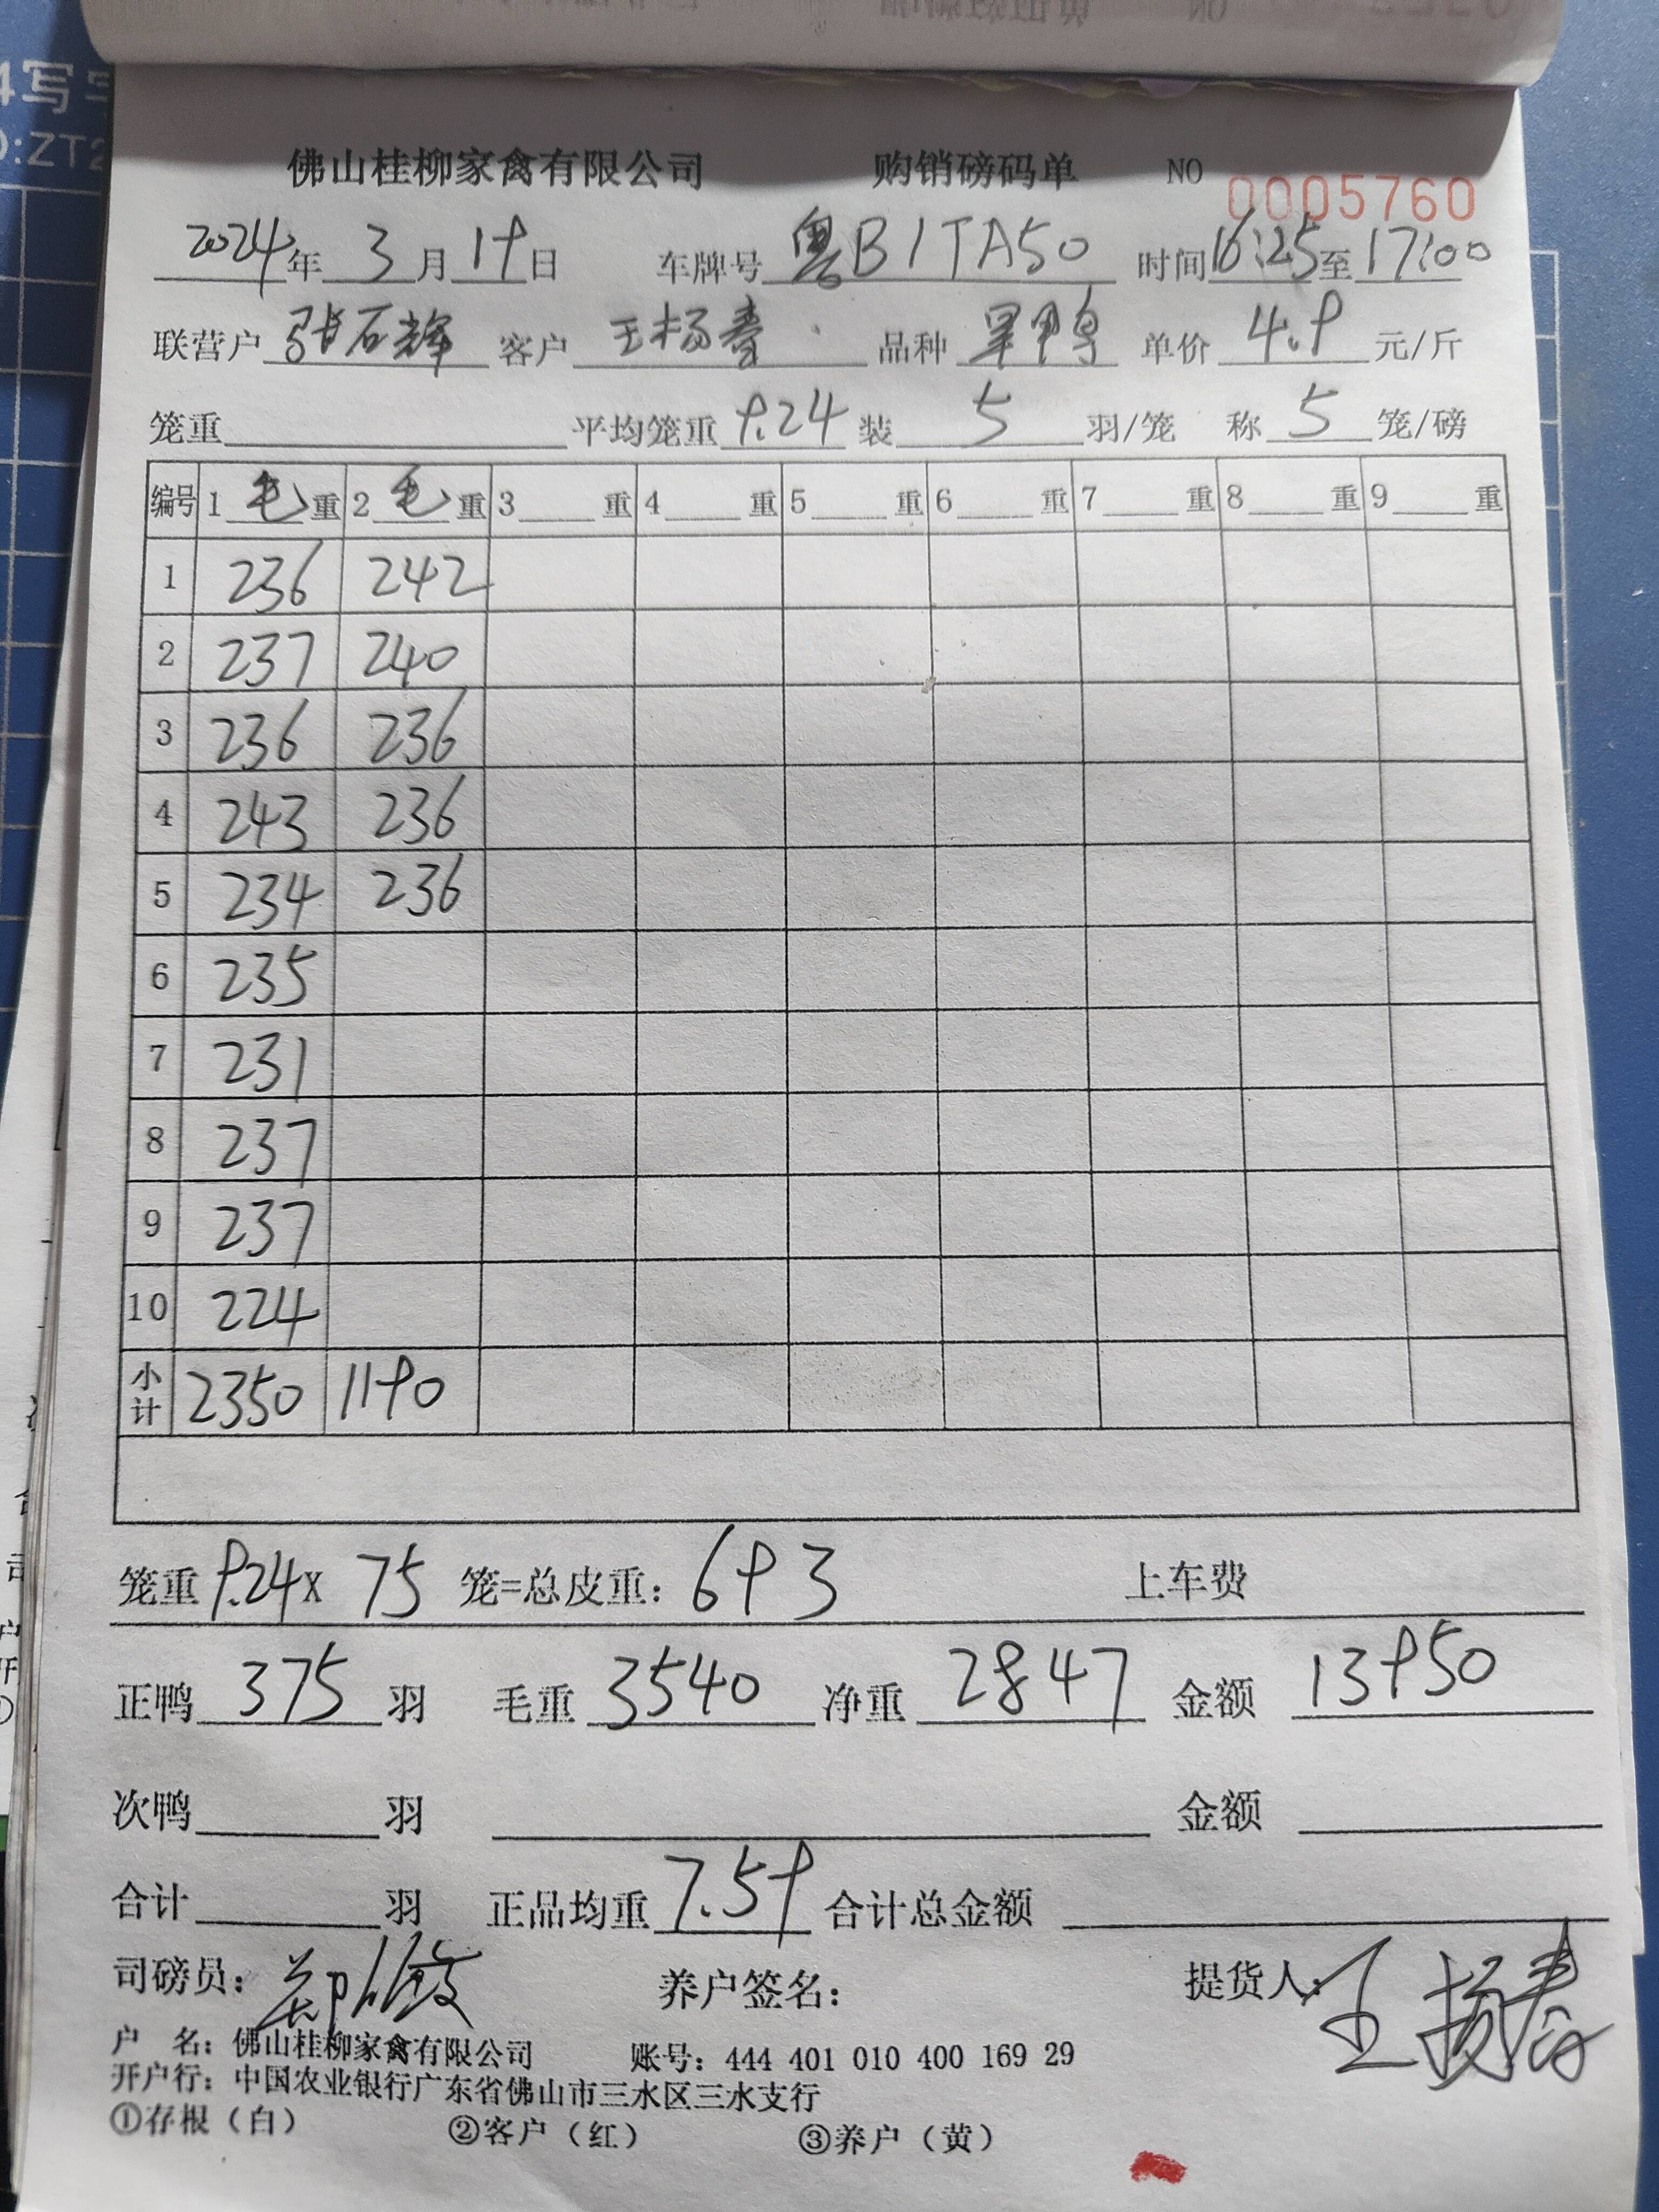 4写
佛山桂柳家禽有限公司 购销磅码单 NO 0005760
2024年 3月19日 车牌号 粤B1TA50 时间16:25至17:00
联营户 张石辉 客户 王杨春 品种 黑鸭 单价 4.9 元/斤
笼重 平均笼重 9.24 装 5 羽/笼 称 5 笼/磅
编号 1 毛 重 2 毛 重 3 重 4 重 5 重 6 重 7 重 8 重 9 重
1 236 242
2 237 240
3 236 236
4 243 236
5 234 236
6 235
7 231
8 237
9 237
10 224
小计 2350 1190
笼重 9.24 x 75 笼=总皮重: 693 上车费
正鸭 375 羽 毛重 3540 净重 2847 金额 13950
次鸭 羽 金额
合计 羽 正品均重 7.59 合计总金额
司磅员: 养户签名: 提货人: 王杨春
户 名: 佛山桂柳家禽有限公司 账号: 444 401 010 400 169 29
开户行: 中国农业银行广东省佛山市三水区三水支行
①存根(白) ②客户(红) ③养户(黄)